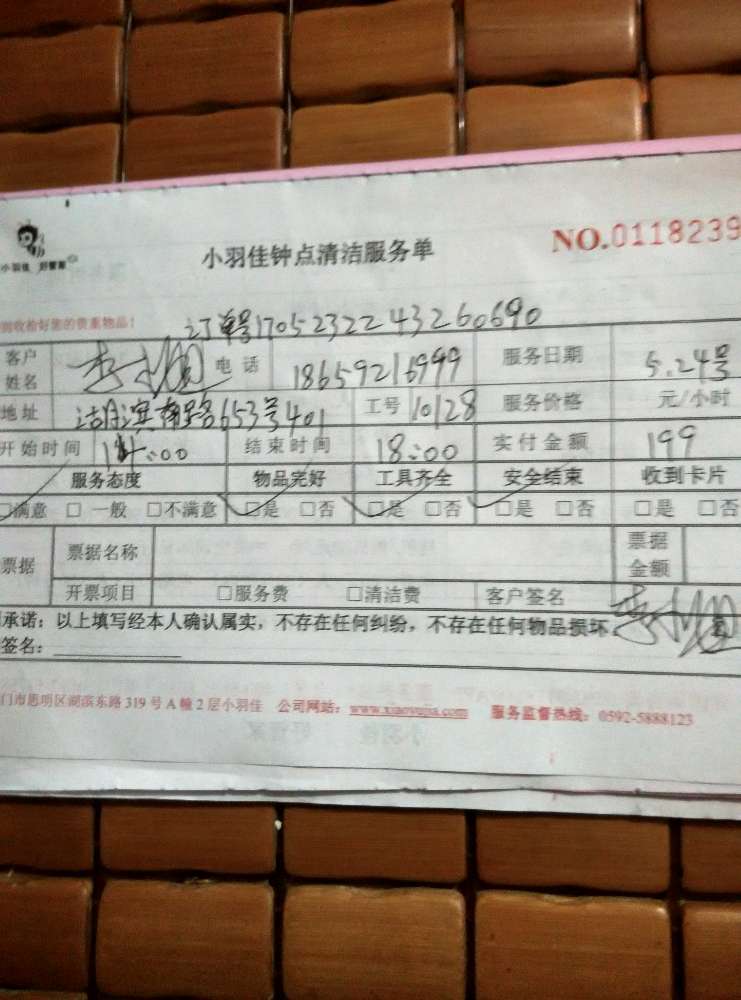 小羽佳 好管家
小羽佳钟点清洁服务单
NO.0118239
收拾好您的贵重物品！
订单号170523224 43260690
客户姓名 电话 18659216999 服务日期 5.24号
地址 湖滨南路653号401 工号 10128 服务价格 元/小时
开始时间 14:00 结束时间 18:00 实付金额 199
服务态度 物品完好 工具齐全 安全结束 收到卡片
□满意 □一般 □不满意 □是 □否 □是 □否 □是 □否 □是 □否
票据 票据名称 票据金额
开票项目 □服务费 □清洁费 客户签名
承诺：以上填写经本人确认属实，不存在任何纠纷，不存在任何物品损坏
签名：
门市思明区湖滨东路319号A幢2层小羽佳 公司网站：www.xiaoyujia.com 服务监督热线：0592-5888123